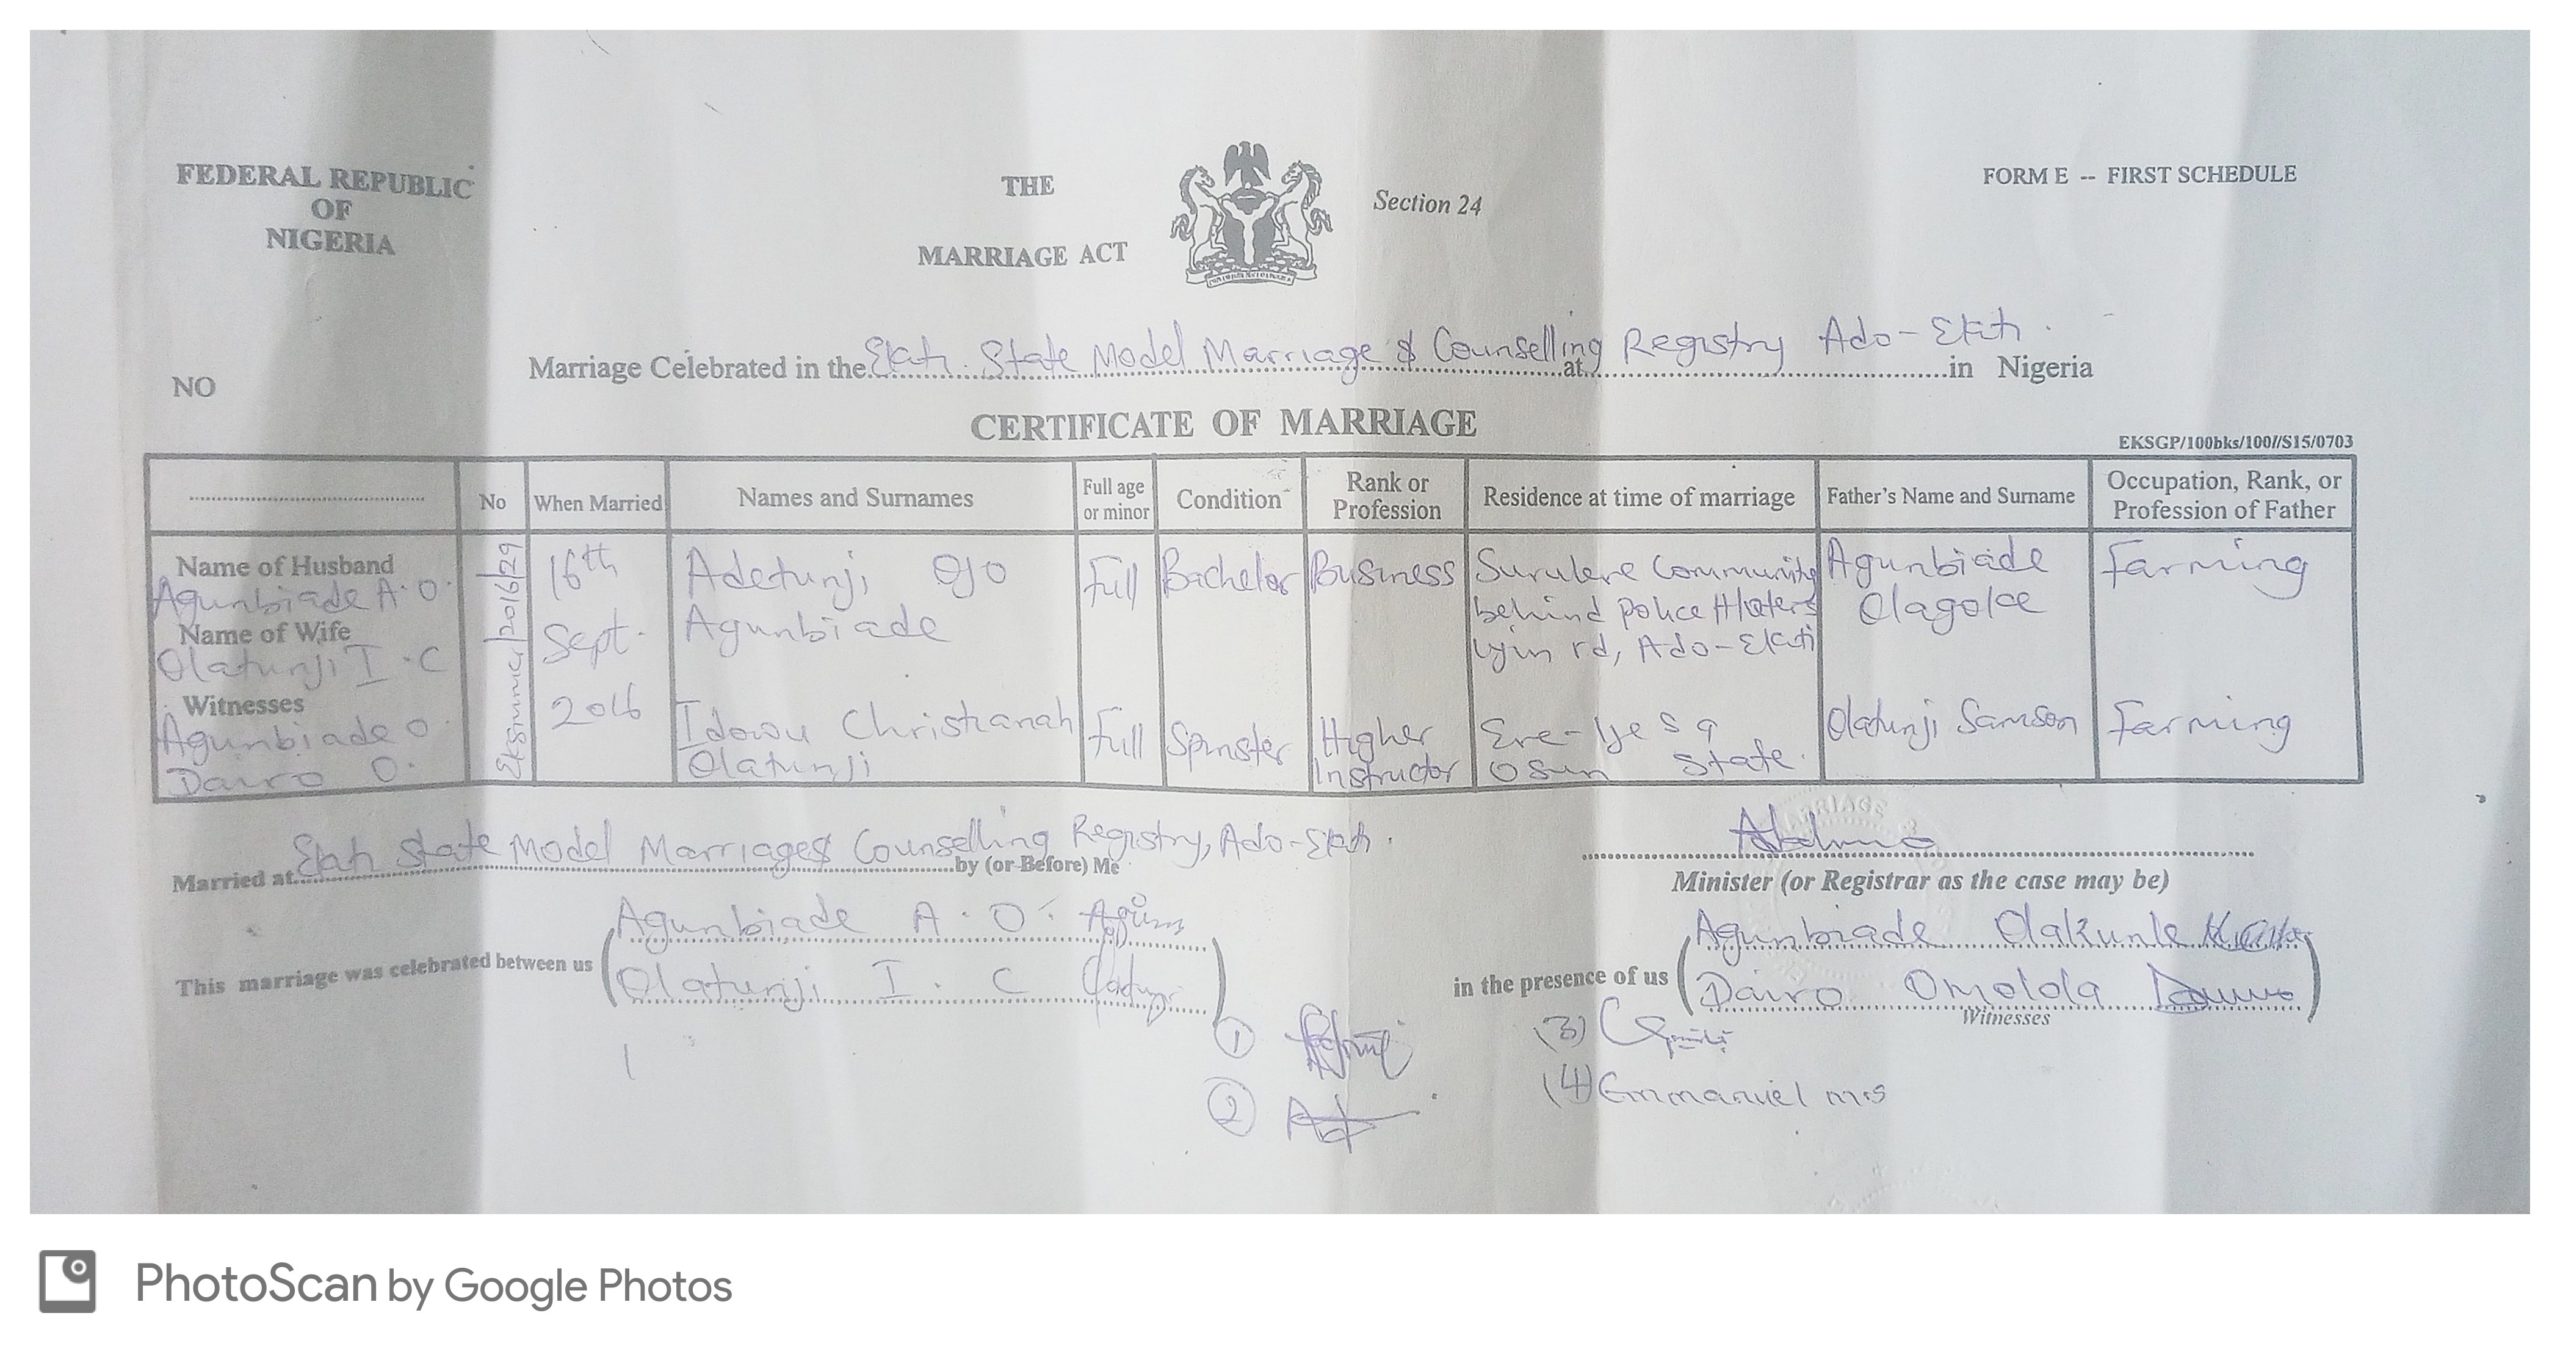 FEDERAL REPUBLIC
OF
NIGERIA
THE
MARRIAGE ACT
Section 24
FORM E -- FIRST SCHEDULE
NO
Marriage Celebrated in the Ekiti State Model Marriage & Counselling at Registry Ado-Ekiti in Nigeria
CERTIFICATE OF MARRIAGE
EKSGP/100bks/100//S15/0703
No
When Married
Names and Surnames
Full age
or minor
Condition
Rank or
Profession
Residence at time of marriage
Father's Name and Surname
Occupation, Rank, or
Profession of Father
Name of Husband
Agunbiade A.O.
Name of Wife
Olatunji I.C
Witnesses
Agunbiade O.
Dairo O.
/2016/29
16th
Sept.
2016
Adetunji Ojo
Agunbiade
Full
Bachelor
Business
Surulere Community
behind Police H/qters
Iyin rd, Ado-Ekiti
Agunbiade
Olagoke
Farming
Idowu Christianah
Olatunji
Full
Spinster
Higher
Instructor
Ere-Ijesa
Osun State.
Olatunji Samson
Farming
Married at Ekiti State Model Marriage & Counselling Registry, Ado-Ekiti. by (or Before) Me
Minister (or Registrar as the case may be)
This marriage was celebrated between us
Agunbiade A.O.
Olatunji I.C
in the presence of us
Agunbiade Olakunle
Dairo Omolola
Witnesses
1
2
(3)
(4) Emmanuel mrs
PhotoScan by Google Photos